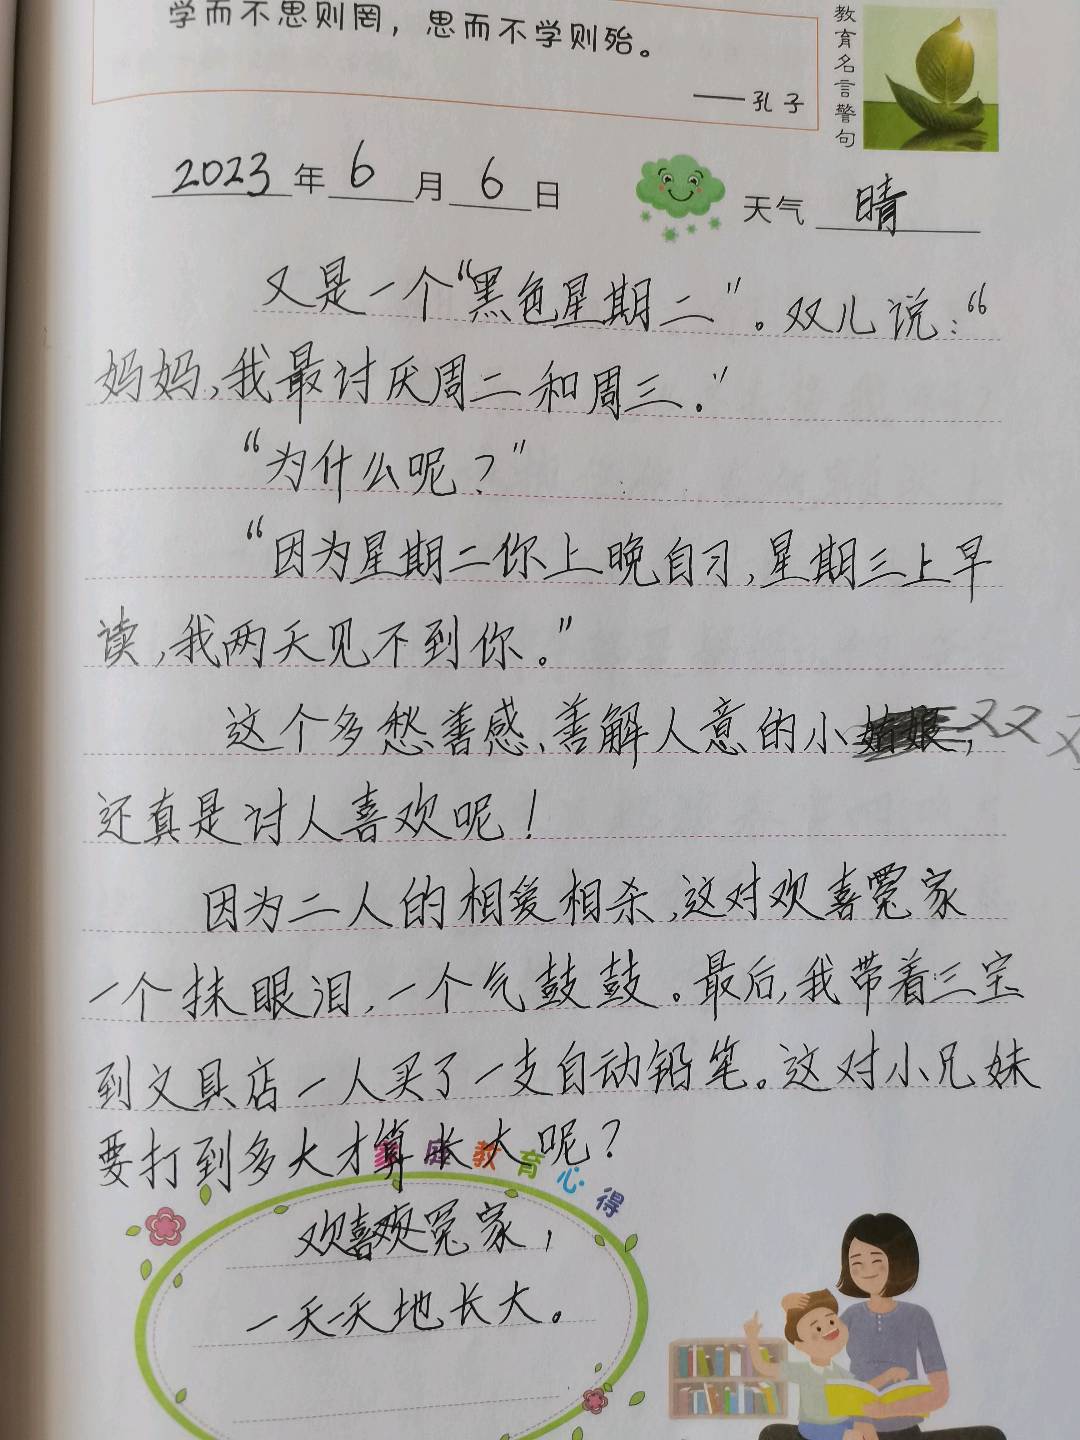 学而不思则罔，思而不学则殆。
——孔子
教育名言警句
2023年6月6日 天气 晴
又是一个“黑色星期二”。双儿说：“
妈妈，我最讨厌周二和周三．”
“为什么呢？”
“因为星期二你上晚自习，星期三上早
读，我两天见不到你。”
这个多愁善感、善解人意的小双双
还真是讨人喜欢呢！
因为二人的相爱相杀，这对欢喜冤家
一个抹眼泪，一个气鼓鼓。最后，我带着三宝
到文具店一人买了一支自动铅笔。这对小兄妹
要打到多大才算长大呢？
家庭教育心得
欢喜冤家，
一天一天地长大。